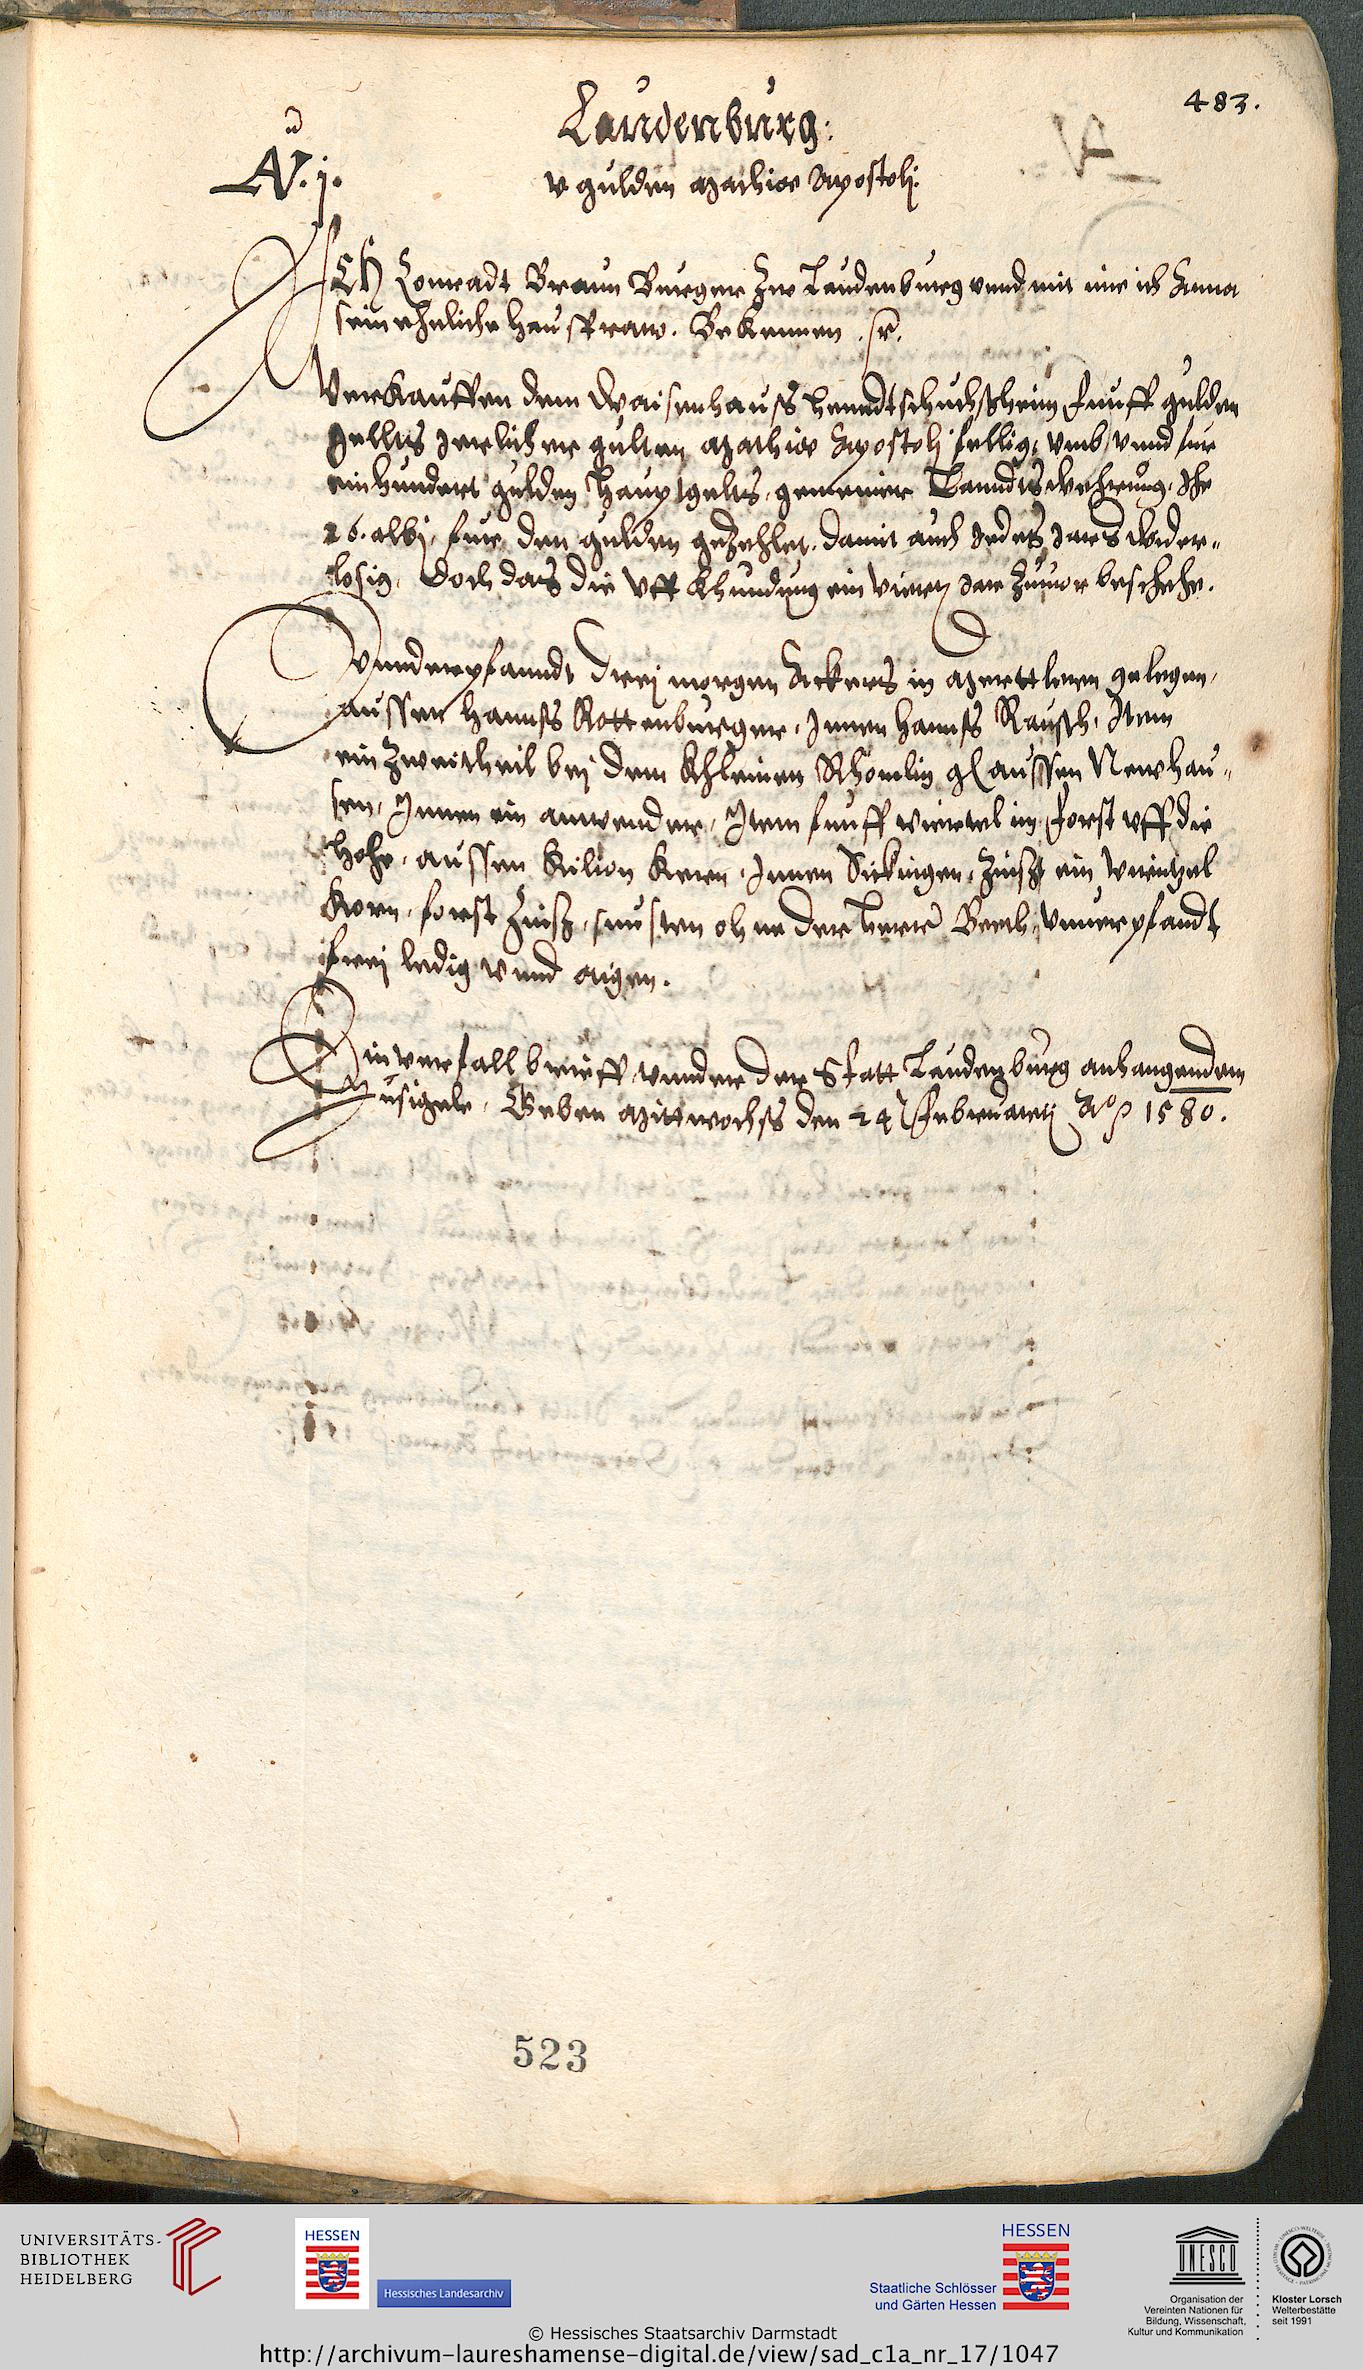 483.
Laudenburg:
N. j.
v gulden Mathiae Apostolj.
ICH Conradt Braun Burger Zue Laudenburg vnnd mit mir ich Anna
sein eheliche haussfraw. Bekennen.
Verkauffen dem Waisenhauss henndtschuchssheim funff gulden
gelltts Jerlicher gulten Mathiae Apostolj fellig, vmb vnnd fur
einhundert gulden Hauptgelts, gemeiner Lanndtswehrung, Jhe
26. albj, fur den gulden gezehlet. damit auch Jedes Jars wider-
losig, doch das die vffkhundung ein viertel Jar zuuor beschehe.
Vnnderpfanndt drej morgen Ackers in gelegen,
aussen Hannss Rottenburger, Jnnen hannss Rausch, Jtem
ein Zweitheil bej dem Khleinen Rhomlin gl aussen Newhau-
sen, Jnnen ein anwender, Jtem funff viertel im forst vff die
Hohe, aussen Kilian Kern, Jnnen Sickingen, Zinsst ein viernzel
Korn, forst Zinss, sunsten ohne der Herrn Beeth, vnuerpfandt
frej ledig vnnd aigen.
Ein verfallbrieff vnnder der Statt Laudenburg anhangendem
Jnsigele, Geben Mittwochss den 24 Februarij Ao 1580.
523
UNIVERSITÄTS-
BIBLIOTHEK
HEIDELBERG
HESSEN
Hessisches Landesarchiv
HESSEN
Staatliche Schlösser
und Gärten Hessen
UNESCO
Organisation der
Vereinten Nationen für
Bildung, Wissenschaft,
Kultur und Kommunikation
Kloster Lorsch
Welterbestätte
seit 1991
© Hessisches Staatsarchiv Darmstadt
http://archivum-laureshamense-digital.de/view/sad_c1a_nr_17/1047